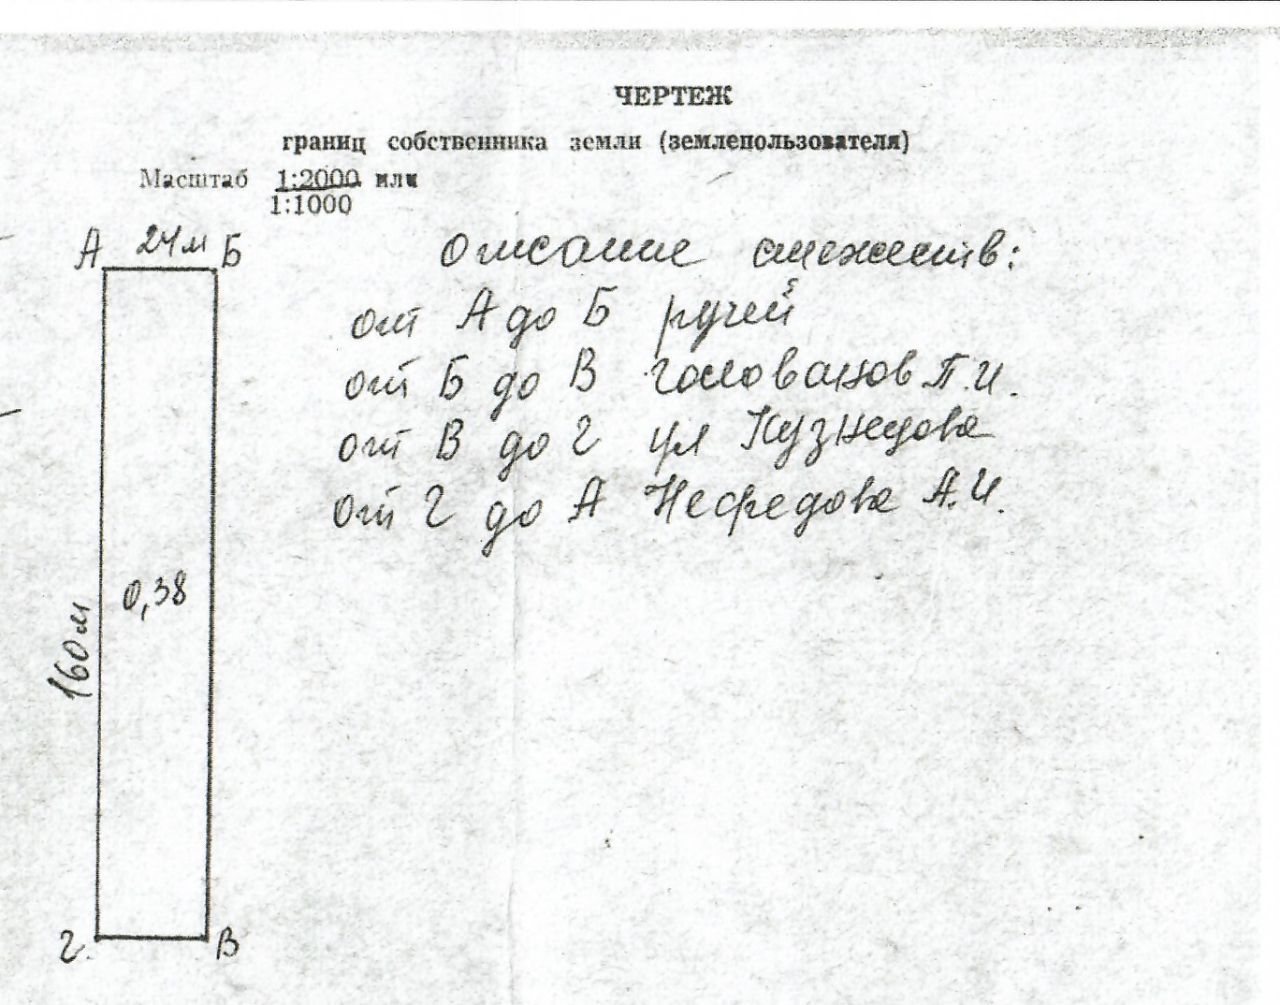 ЧЕРТЕЖ
границ собственника земли (землепользователя)
Масштаб 1:2000 или
1:1000
А 24м Б
Описание смежеств:
от А до Б ручей
от Б до В Голованов П.И.
от В до Г ул Кузнецова
от Г до А Нефедова А.И.
0,38
160м
Г В